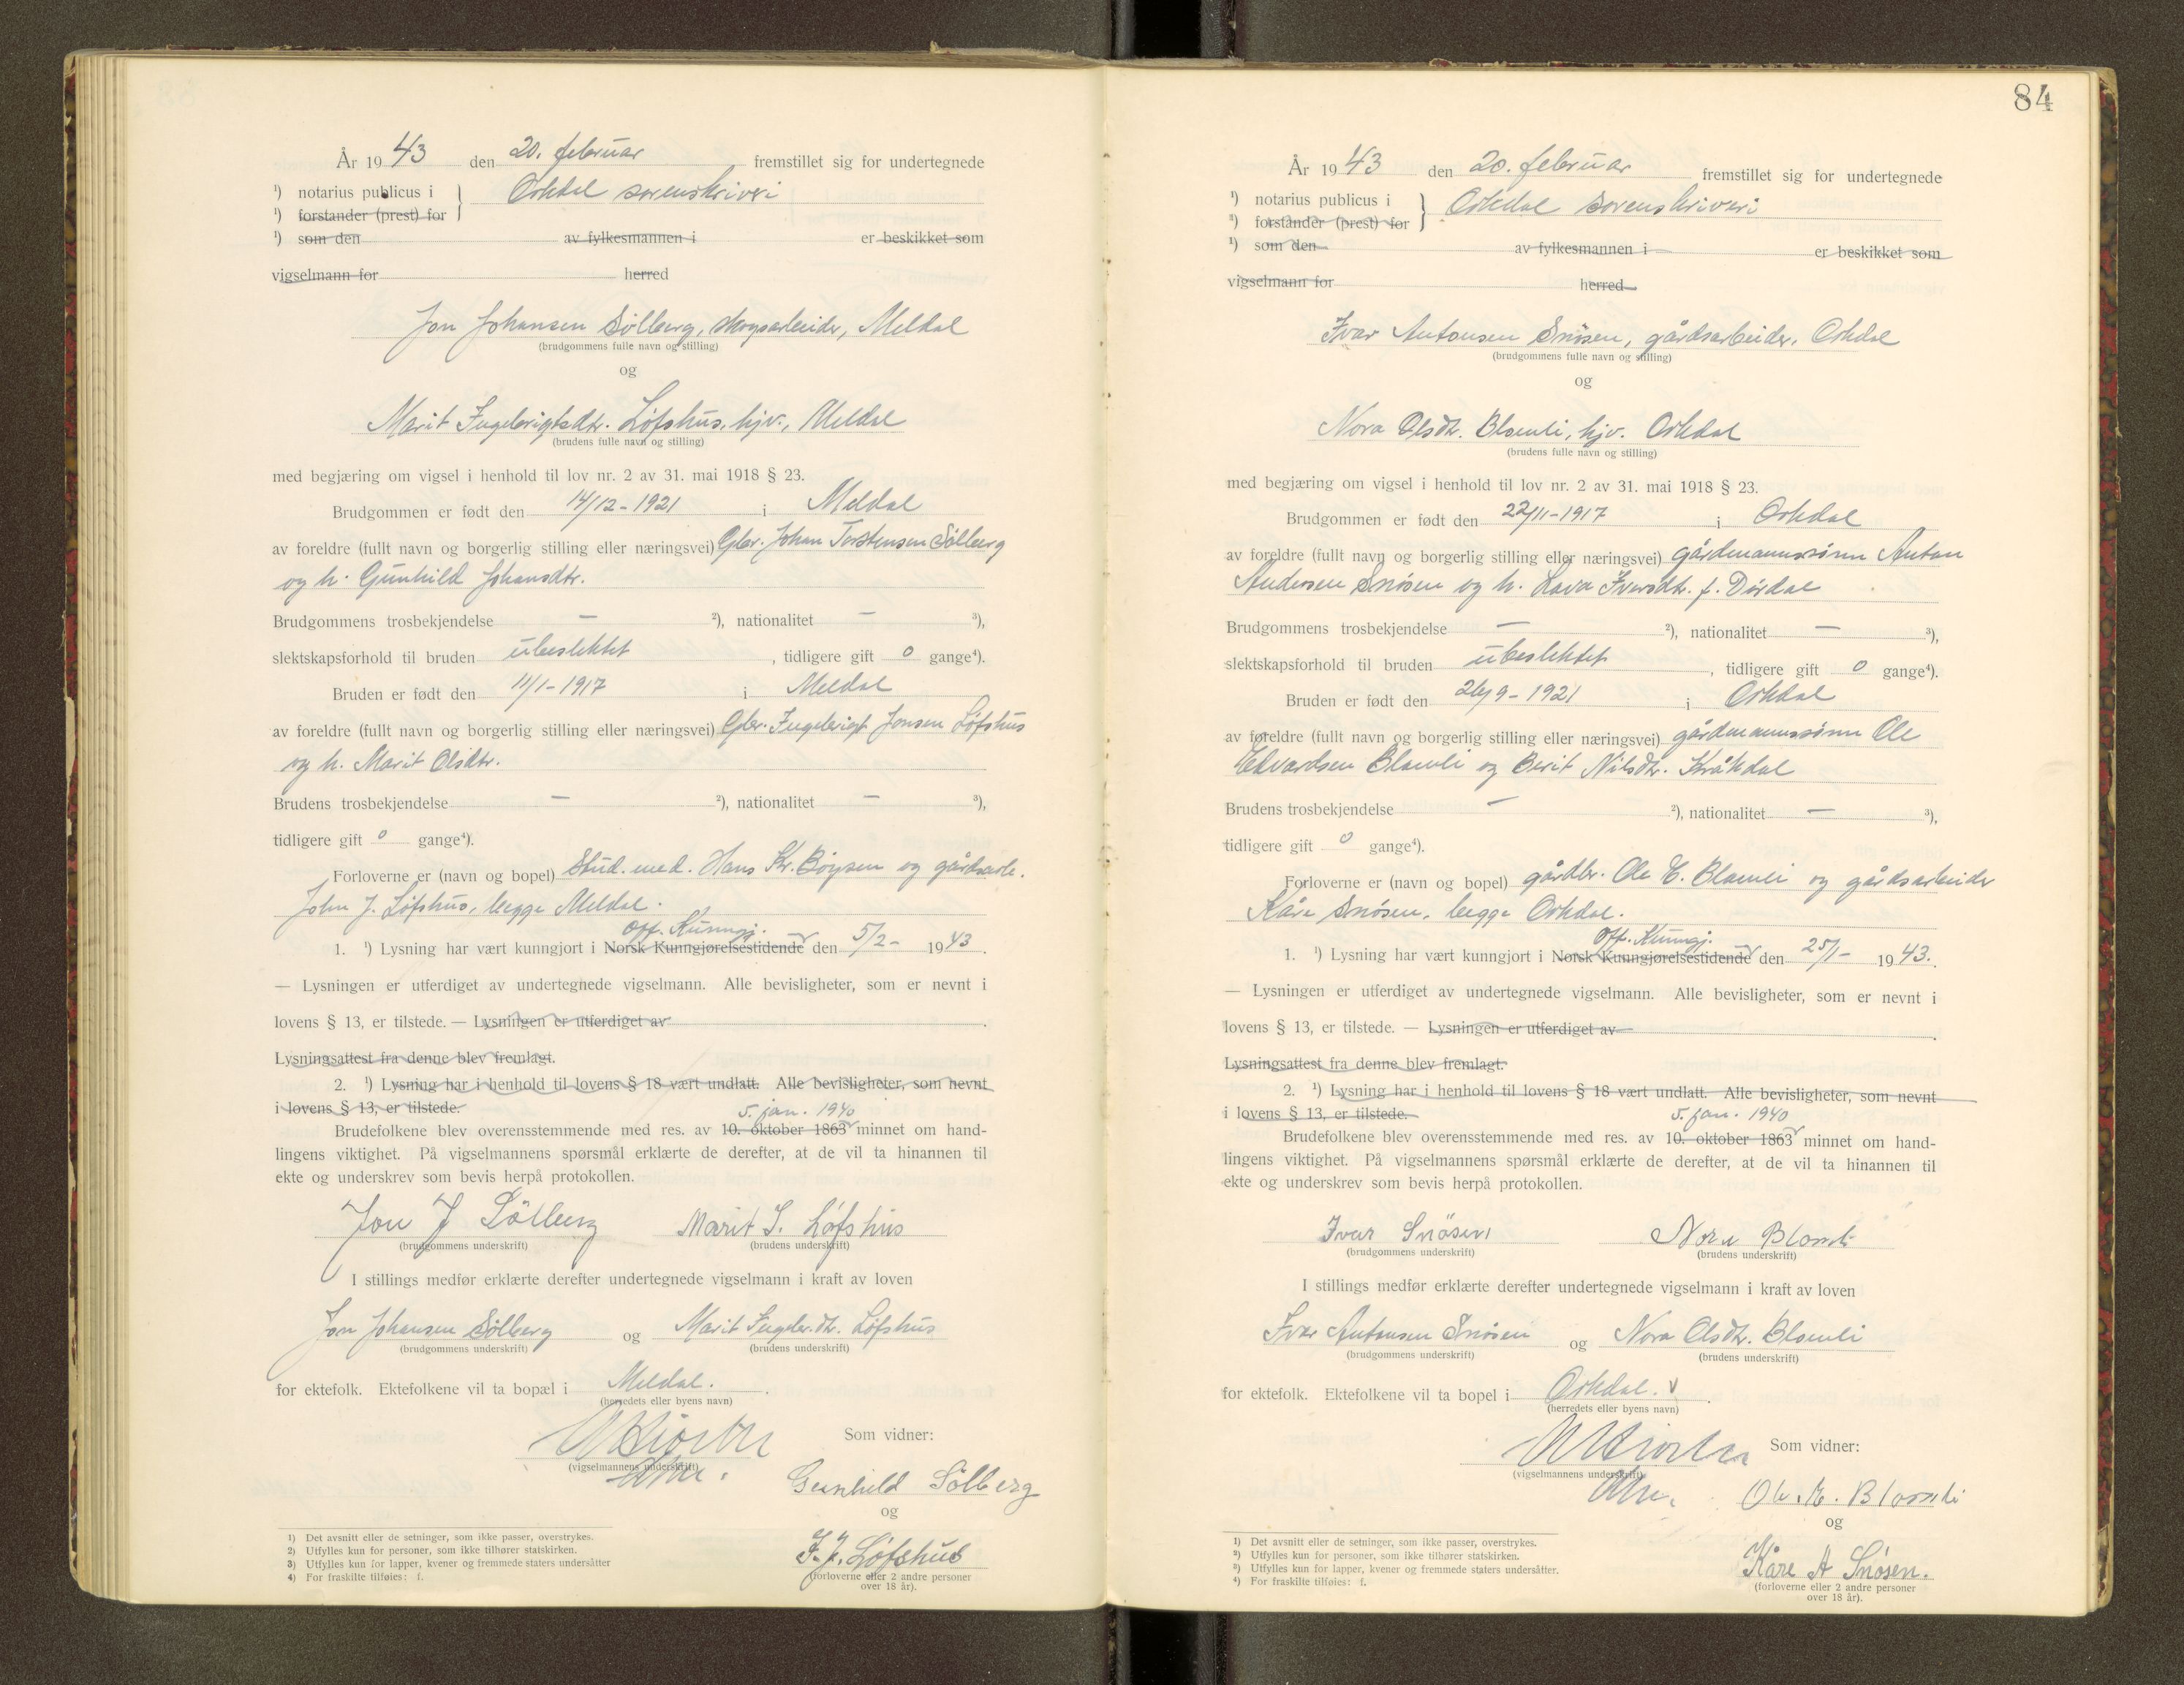 År 1943 den 20. februar fremstillet sig for undertegnede
¹) notarius publicus i } Orkdal sorenskriveri
¹) forstander (prest) for
¹) som den av fylkesmannen i er beskikket som
vigselmann for herred
Jon Johansen Sølberg, skogsarbeider, Meldal
(brudgommens fulle navn og stilling)
og
Marit Ingebrigtsdtr. Løfshus, hjv., Meldal
(brudens fulle navn og stilling)
med begjæring om vigsel i henhold til lov nr. 2 av 31. mai 1918 § 23.
Brudgommen er født den 14/12-1921 i Meldal
av foreldre (fullt navn og borgerlig stilling eller næringsvei) Gbr. Johan Torstensen Sølberg
og h. Gunhild Johansdtr.
Brudgommens trosbekjendelse — ²), nationalitet — ³),
slektskapsforhold til bruden ubeslektet, tidligere gift 0 gange⁴).
Bruden er født den 11/1-1917 i Meldal
av foreldre (fullt navn og borgerlig stilling eller næringsvei) Gbr. Ingebrigt Jonsen Løfshus
og h. Marit Olsdtr.
Brudens trosbekjendelse — ²), nationalitet — ³),
tidligere gift 0 gange⁴).
Forloverne er (navn og bopel) Stud. med. Hans Kr. Bøysen og gårdsarb.
John J. Løfshus, begge Meldal.
Off. Kunngj.
1. ¹) Lysning har vært kunngjort i Norsk Kunngjørelsestidende den 5/2- 1943.
— Lysningen er utferdiget av undertegnede vigselmann. Alle bevisligheter, som er nevnt i
lovens § 13, er tilstede. — Lysningen er utferdiget av
Lysningsattest fra denne blev fremlagt.
2. ¹) Lysning har i henhold til lovens § 18 vært undlatt. Alle bevisligheter, som nevnt
i lovens § 13, er tilstede.
5. jan. 1940
Brudefolkene blev overensstemmende med res. av 10. oktober 1863 minnet om hand-
lingens viktighet. På vigselmannens spørsmål erklærte de derefter, at de vil ta hinannen til
ekte og underskrev som bevis herpå protokollen.
Jon J Sølberg Marit I. Løfshus
(brudgommens underskrift) (brudens underskrift)
I stillings medfør erklærte derefter undertegnede vigselmann i kraft av loven
Jon Johansen Sølberg og Marit Ingebr.dtr. Løfshus
(brudgommens underskrift) (brudens underskrift)
for ektefolk. Ektefolkene vil ta bopæl i Meldal.
(herredets eller byens navn)
Som vidner:
(vigselmannens underskrift)
Gunhild Sølberg
og
I. J. Løfshus
(forloverne eller 2 andre personer
over 18 år).
1) Det avsnitt eller de setninger, som ikke passer, overstrykes.
2) Utfylles kun for personer, som ikke tilhører statskirken.
3) Utfylles kun for lapper, kvener og fremmede staters undersåtter
4) For fraskilte tilføies: f.
84
År 1943 den 20. februar fremstillet sig for undertegnede
¹) notarius publicus i } Orkdal sorenskriveri
²) forstander (prest) for
¹) som den av fylkesmannen i er beskikket som
vigselmann for herred
Ivar Antonsen Snøsen, gårdsarbeider, Orkdal
(brudgommens fulle navn og stilling)
og
Nora Olsdtr. Blomli, hjv. Orkdal
(brudens fulle navn og stilling)
med begjæring om vigsel i henhold til lov nr. 2 av 31. mai 1918 § 23.
Brudgommen er født den 22/11-1917 i Orkdal
av foreldre (fullt navn og borgerlig stilling eller næringsvei) gårdmannssønn Anton
Andersen Snøsen og h. Lava Iversdtr. f. Dørdal
Brudgommens trosbekjendelse — ²), nationalitet — ³),
slektskapsforhold til bruden ubeslektet, tidligere gift 0 gange⁴).
Bruden er født den 26/9-1921 i Orkdal
av føreldre (fullt navn og borgerlig stilling eller næringsvei) gårdmannssønn Ole
Edvardsen Blomli og Berit Nilsdtr. Kråkdal
Brudens trosbekjendelse — ²), nationalitet — ³),
tidligere gift 0 gange⁴).
Forloverne er (navn og bopel) gårdbr. Ole E. Blomli og gårdsarbeider
Kåre Snøsen, begge Orkdal.
Off. Kunngj.
1. ¹) Lysning har vært kunngjort i Norsk Kunngjørelsestidende den 25/1- 1943.
— Lysningen er utferdiget av undertegnede vigselmann. Alle bevisligheter, som er nevnt i
lovens § 13, er tilstede. — Lysningen er utferdiget av
Lysningsattest fra denne blev fremlagt.
2. ¹) Lysning har i henhold til lovens § 18 vært undlatt. Alle bevisligheter, som nevnt
i lovens § 13, er tilstede.
5. jan. 1940
Brudefolkene blev overensstemmende med res. av 10. oktober 1863 minnet om hand-
lingens viktighet. På vigselmannens spørsmål erklærte de derefter, at de vil ta hinannen til
ekte og underskrev som bevis herpå protokollen.
Ivar Snøsen Nora Blomli
(brudgommens underskrift) (brudens underskrift)
I stillings medfør erklærte derefter undertegnede vigselmann i kraft av loven
Ivar Antonsen Snøsen og Nora Olsdtr. Blomli
(brudgommens underskrift) (brudens underskrift)
for ektefolk. Ektefolkene vil ta bopel i Orkdal.
(herredets eller byens navn)
Som vidner:
(vigselmannens underskrift)
Ole. E. Blomli
og
Kåre A Snøsen.
(forloverne eller 2 andre personer
over 18 år).
¹) Det avsnitt eller de setninger, som ikke passer, overstrykes.
²) Utfylles kun for personer, som ikke tilhører statskirken.
³) Utfylles kun for lapper, kvener og fremmede staters undersåtter.
⁴) For fraskilte tilføies: f.